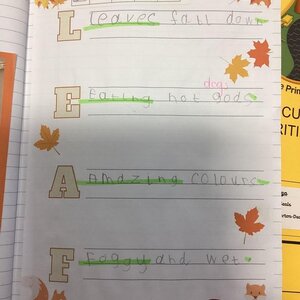 L Leaves fall down
dogs
E Eating hot gods.
A Amazing colours.
F Foggy and wet.